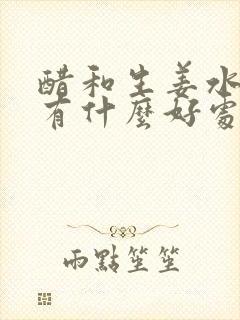 醋和生姜水
有什麼好處
雨點笙笙